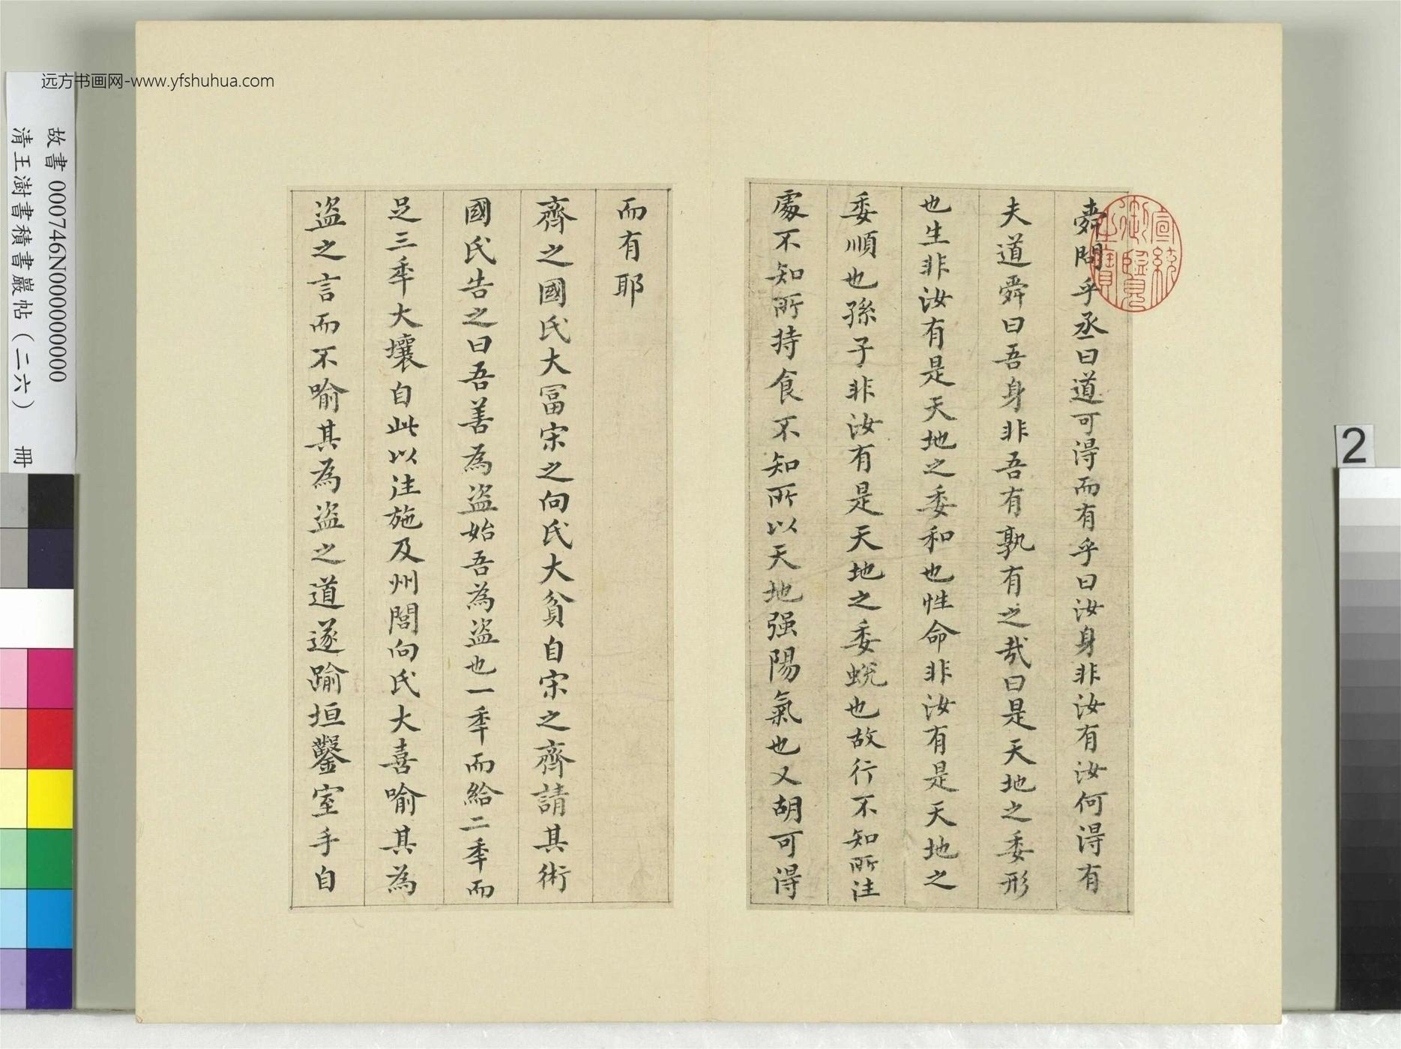 远方书画网-www.yfshuhua.com
舜問乎丞曰道可得而有乎曰汝身非汝有汝何得有
夫道舜曰吾身非吾有孰有之哉曰是天地之委形
也生非汝有是天地之委和也性命非汝有是天地之
委順也孫子非汝有是天地之委蛻也故行不知所往
處不知所持食不知所以天地强陽氣也又胡可得
而有耶
齊之國氏大冨宋之向氏大貧自宋之齊請其術
國氏告之曰吾善為盜始吾為盜也一秊而給二秊而
足三秊大壤自此以往施及州閭向氏大喜喻其為
盜之言而不喻其為盜之道遂踰垣鑿室手自
宣統御覽之寶
故書 000746N000000000
清王澍書積書巖帖(二六) 冊
2